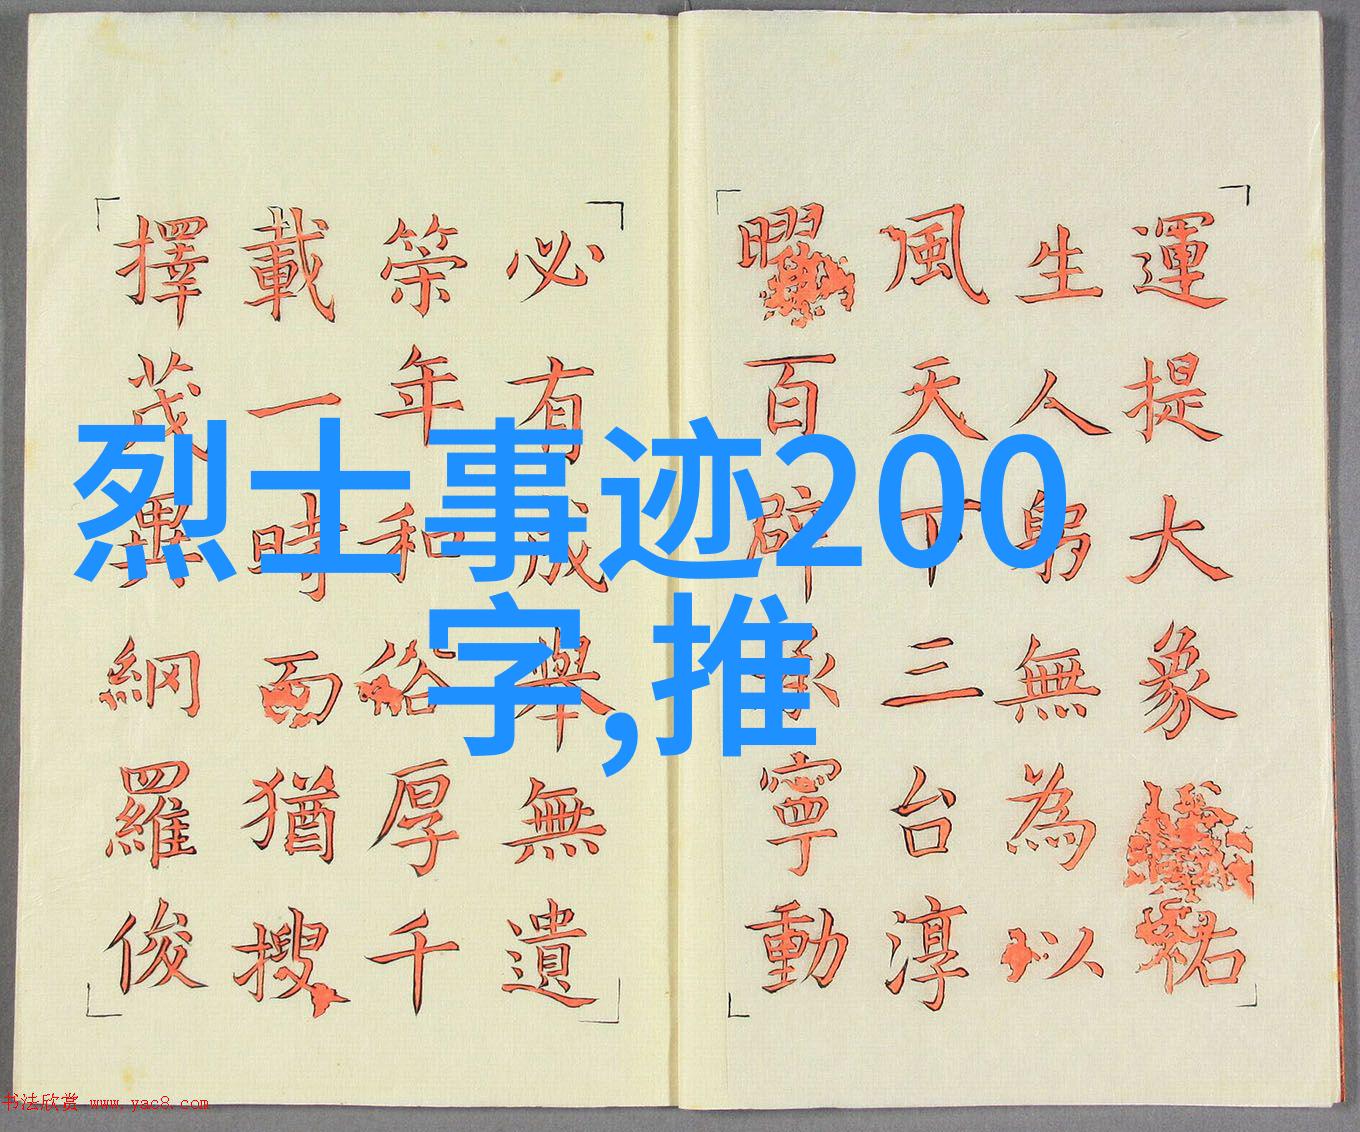 運提大象祐
生人躬無為以
風天下三台淳
曜百辟承寧動
必有成舉無遺
筞年和厚千
載一時而猶搜
擇茂異網羅俊
烈士事迹200
字,推
书法欣赏 www.yac8.com